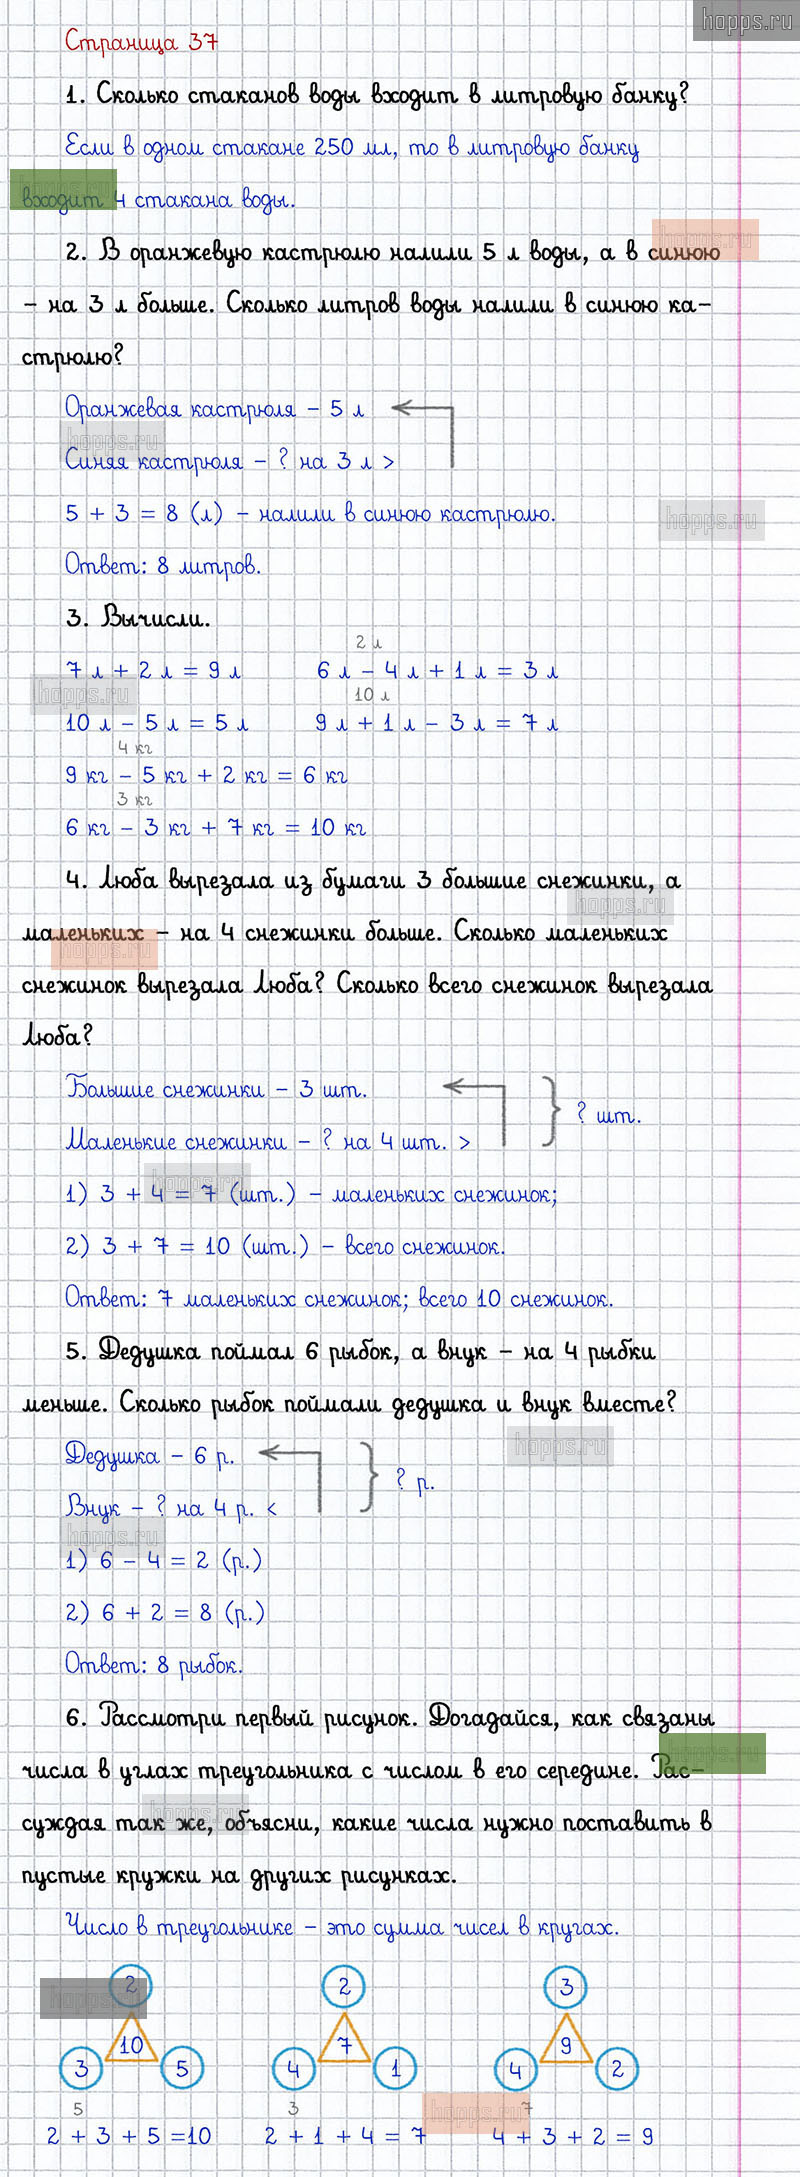 hopps.ru
Страница 37
1. Сколько стаканов воды входит в литровую банку?
Если в одном стакане 250 мл, то в литровую банку
hopps.ru
входит 4 стакана воды.
hopps.ru
2. В оранжевую кастрюлю налили 5 л воды, а в синюю
– на 3 л больше. Сколько литров воды налили в синюю ка-
стрюлю?
Оранжевая кастрюля – 5 л
hopps.ru
Синяя кастрюля – ? на 3 л >
5 + 3 = 8 (л) – налили в синюю кастрюлю.
hopps.ru
Ответ: 8 литров.
3. Вычисли.
2 л
7 л + 2 л = 9 л 6 л – 4 л + 1 л = 3 л
hopps.ru 10 л
10 л – 5 л = 5 л 9 л + 1 л – 3 л = 7 л
4 кг
9 кг – 5 кг + 2 кг = 6 кг
3 кг
6 кг – 3 кг + 7 кг = 10 кг
4. Люба вырезала из бумаги 3 большие снежинки, а
hopps.ru
маленьких – на 4 снежинки больше. Сколько маленьких
hopps.ru
снежинок вырезала Люба? Сколько всего снежинок вырезала
Люба?
Большие снежинки – 3 шт.
? шт.
Маленькие снежинки – ? на 4 шт. >
hopps.ru
1) 3 + 4 = 7 (шт.) – маленьких снежинок;
2) 3 + 7 = 10 (шт.) – всего снежинок.
Ответ: 7 маленьких снежинок; всего 10 снежинок.
5. Дедушка поймал 6 рыбок, а внук – на 4 рыбки
меньше. Сколько рыбок поймали дедушка и внук вместе?
hopps.ru
Дедушка – 6 р.
? р.
Внук – ? на 4 р. <
hopps.ru
1) 6 – 4 = 2 (р.)
2) 6 + 2 = 8 (р.)
Ответ: 8 рыбок.
6. Рассмотри первый рисунок. Догадайся, как связаны
hopps.ru
числа в углах треугольника с числом в его середине. Рас-
hopps.ru
суждая так же, объясни, какие числа нужно поставить в
пустые кружки на других рисунках.
Число в треугольнике – это сумма чисел в кругах.
2 2 3
hopps.ru
10 7 9
3 5 4 1 4 2
5 3 7
hopps.ru
2 + 3 + 5 =10 2 + 1 + 4 = 7 4 + 3 + 2 = 9